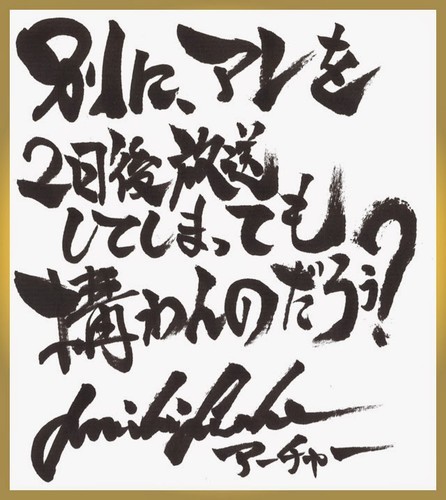 別に、アレを
2日後放送
してしまっても
構わんのだろぅ?
アーチャー